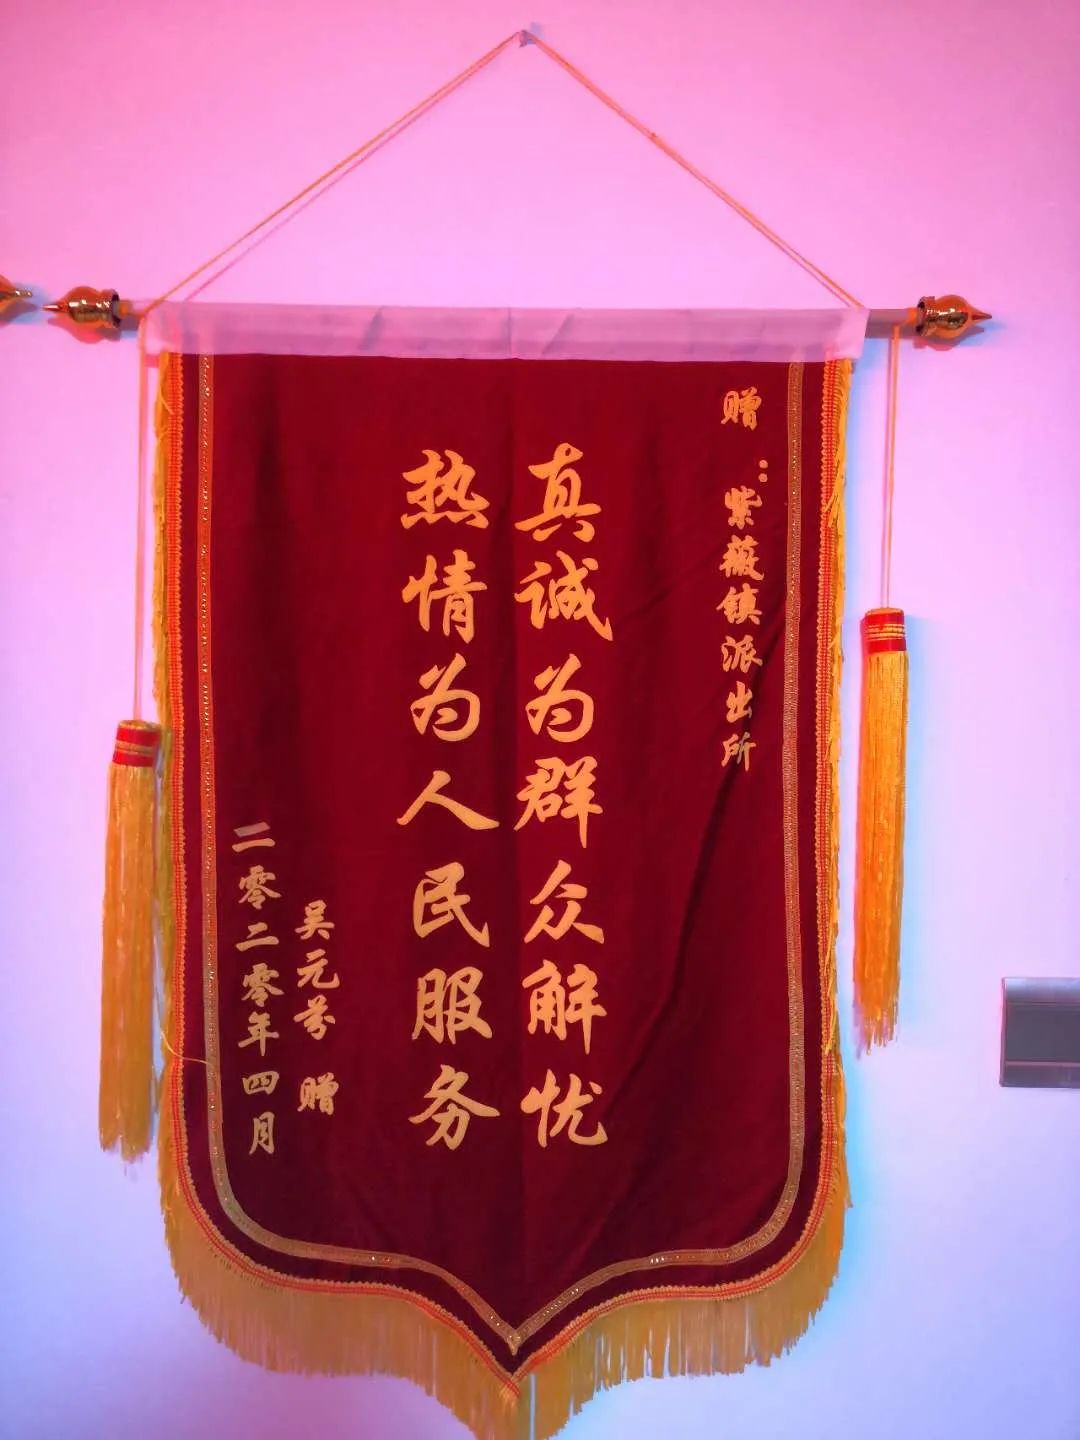 赠：紫薇镇派出所
真诚为群众解忧
热情为人民服务
吴元芬 赠
二零二零年四月